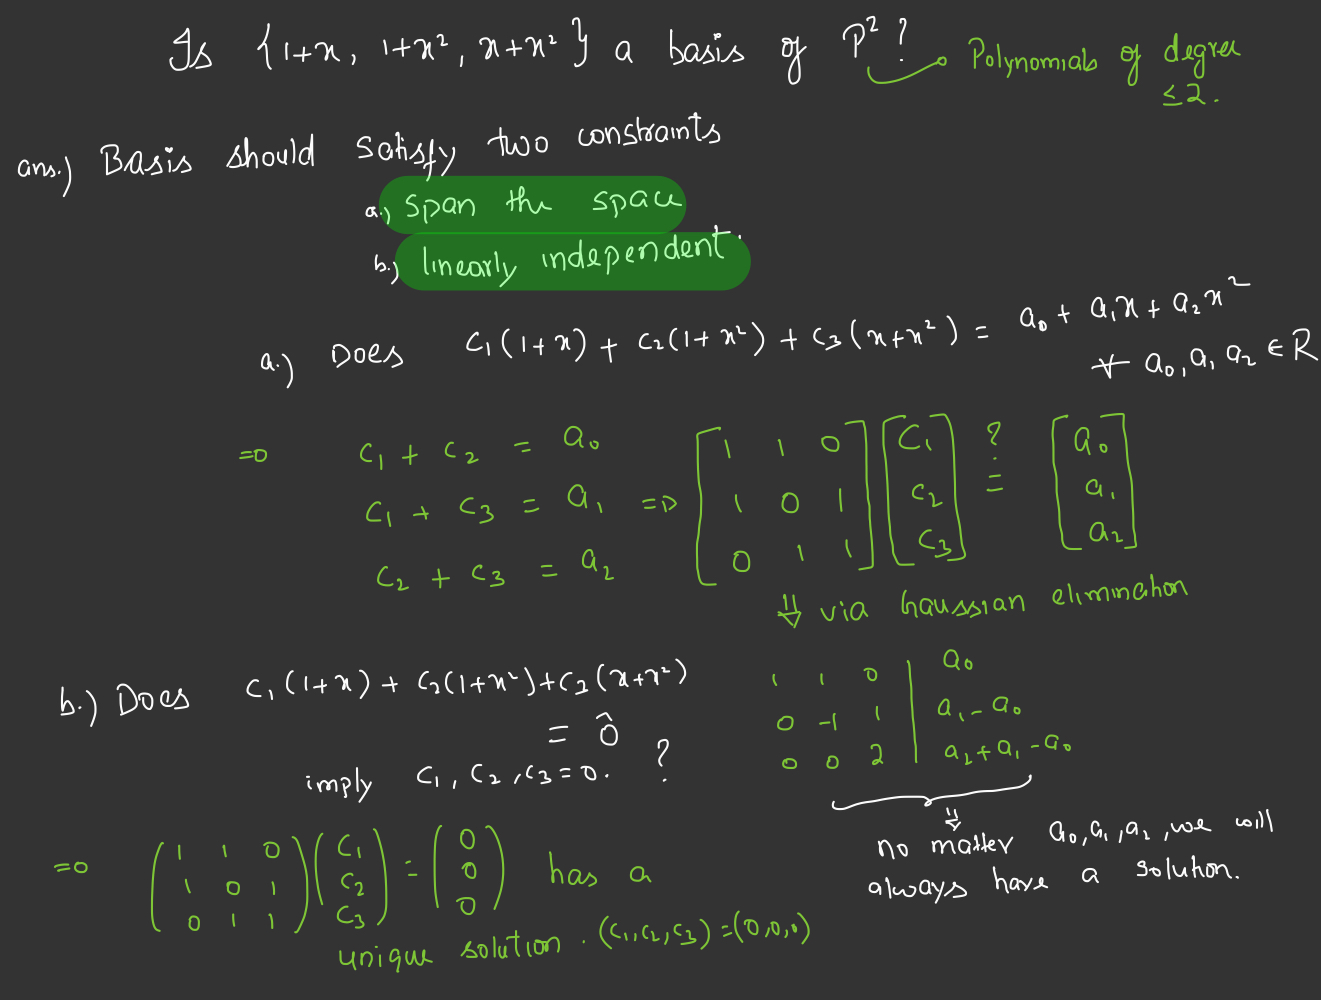 Is {1+x, 1+x², x+x²} a basis of P²?
Polynomials of degree
≤2.
ans.) Basis should satisfy two constraints
a.) span the space
b.) linearly independent.
a.) Does c₁(1+x) + c₂(1+x²) + c₃(x+x²) = a₀ + a₁x + a₂x²
∀ a₀, a₁ a₂ ∈ R
⇒ c₁ + c₂ = a₀
c₁ + c₃ = a₁
c₂ + c₃ = a₂
⇒ [1 1 0] [c₁] ? [a₀]
[1 0 1] [c₂] = [a₁]
[0 1 1] [c₃] [a₂]
⇓ via Gaussian elimination
1 1 0 | a₀
0 -1 1 | a₁-a₀
0 0 2 | a₂+a₁-a₀
⇓
no matter a₀, a₁, a₂, we will
always have a solution.
b.) Does c₁(1+x) + c₂(1+x²)+c₃(x+x²)
= 0̂
imply c₁, c₂, c₃=0. ?
⇒ (1 1 0) (c₁) = (0)
(1 0 1) (c₂) (0) has a
(0 1 1) (c₃) (0)
unique solution. (c₁,c₂,c₃)=(0,0,0)